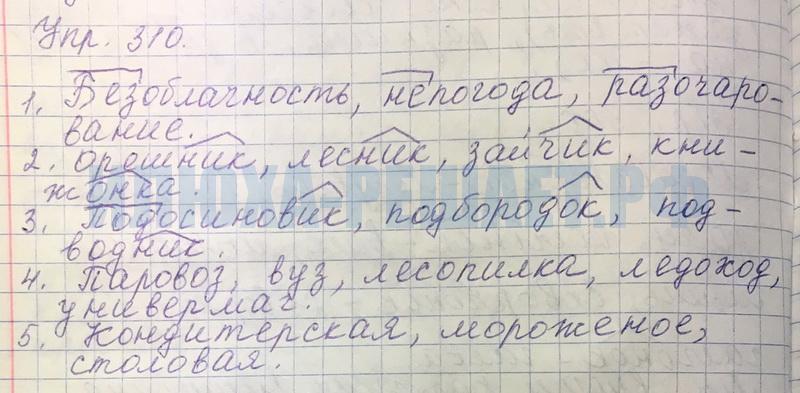 Упр. 310.
1. Безоблачность, непогода, разочаро-
вание.
2. орешник, лесник, зайчик, кни-
жонка
ЮХА-РЕШАЕТ.РФ
3. Подосиновик, подбородок, под-
водник.
4. Паровоз, вуз, лесопилка, ледоход,
универмаг.
5. Кондитерская, мороженое,
столовая.